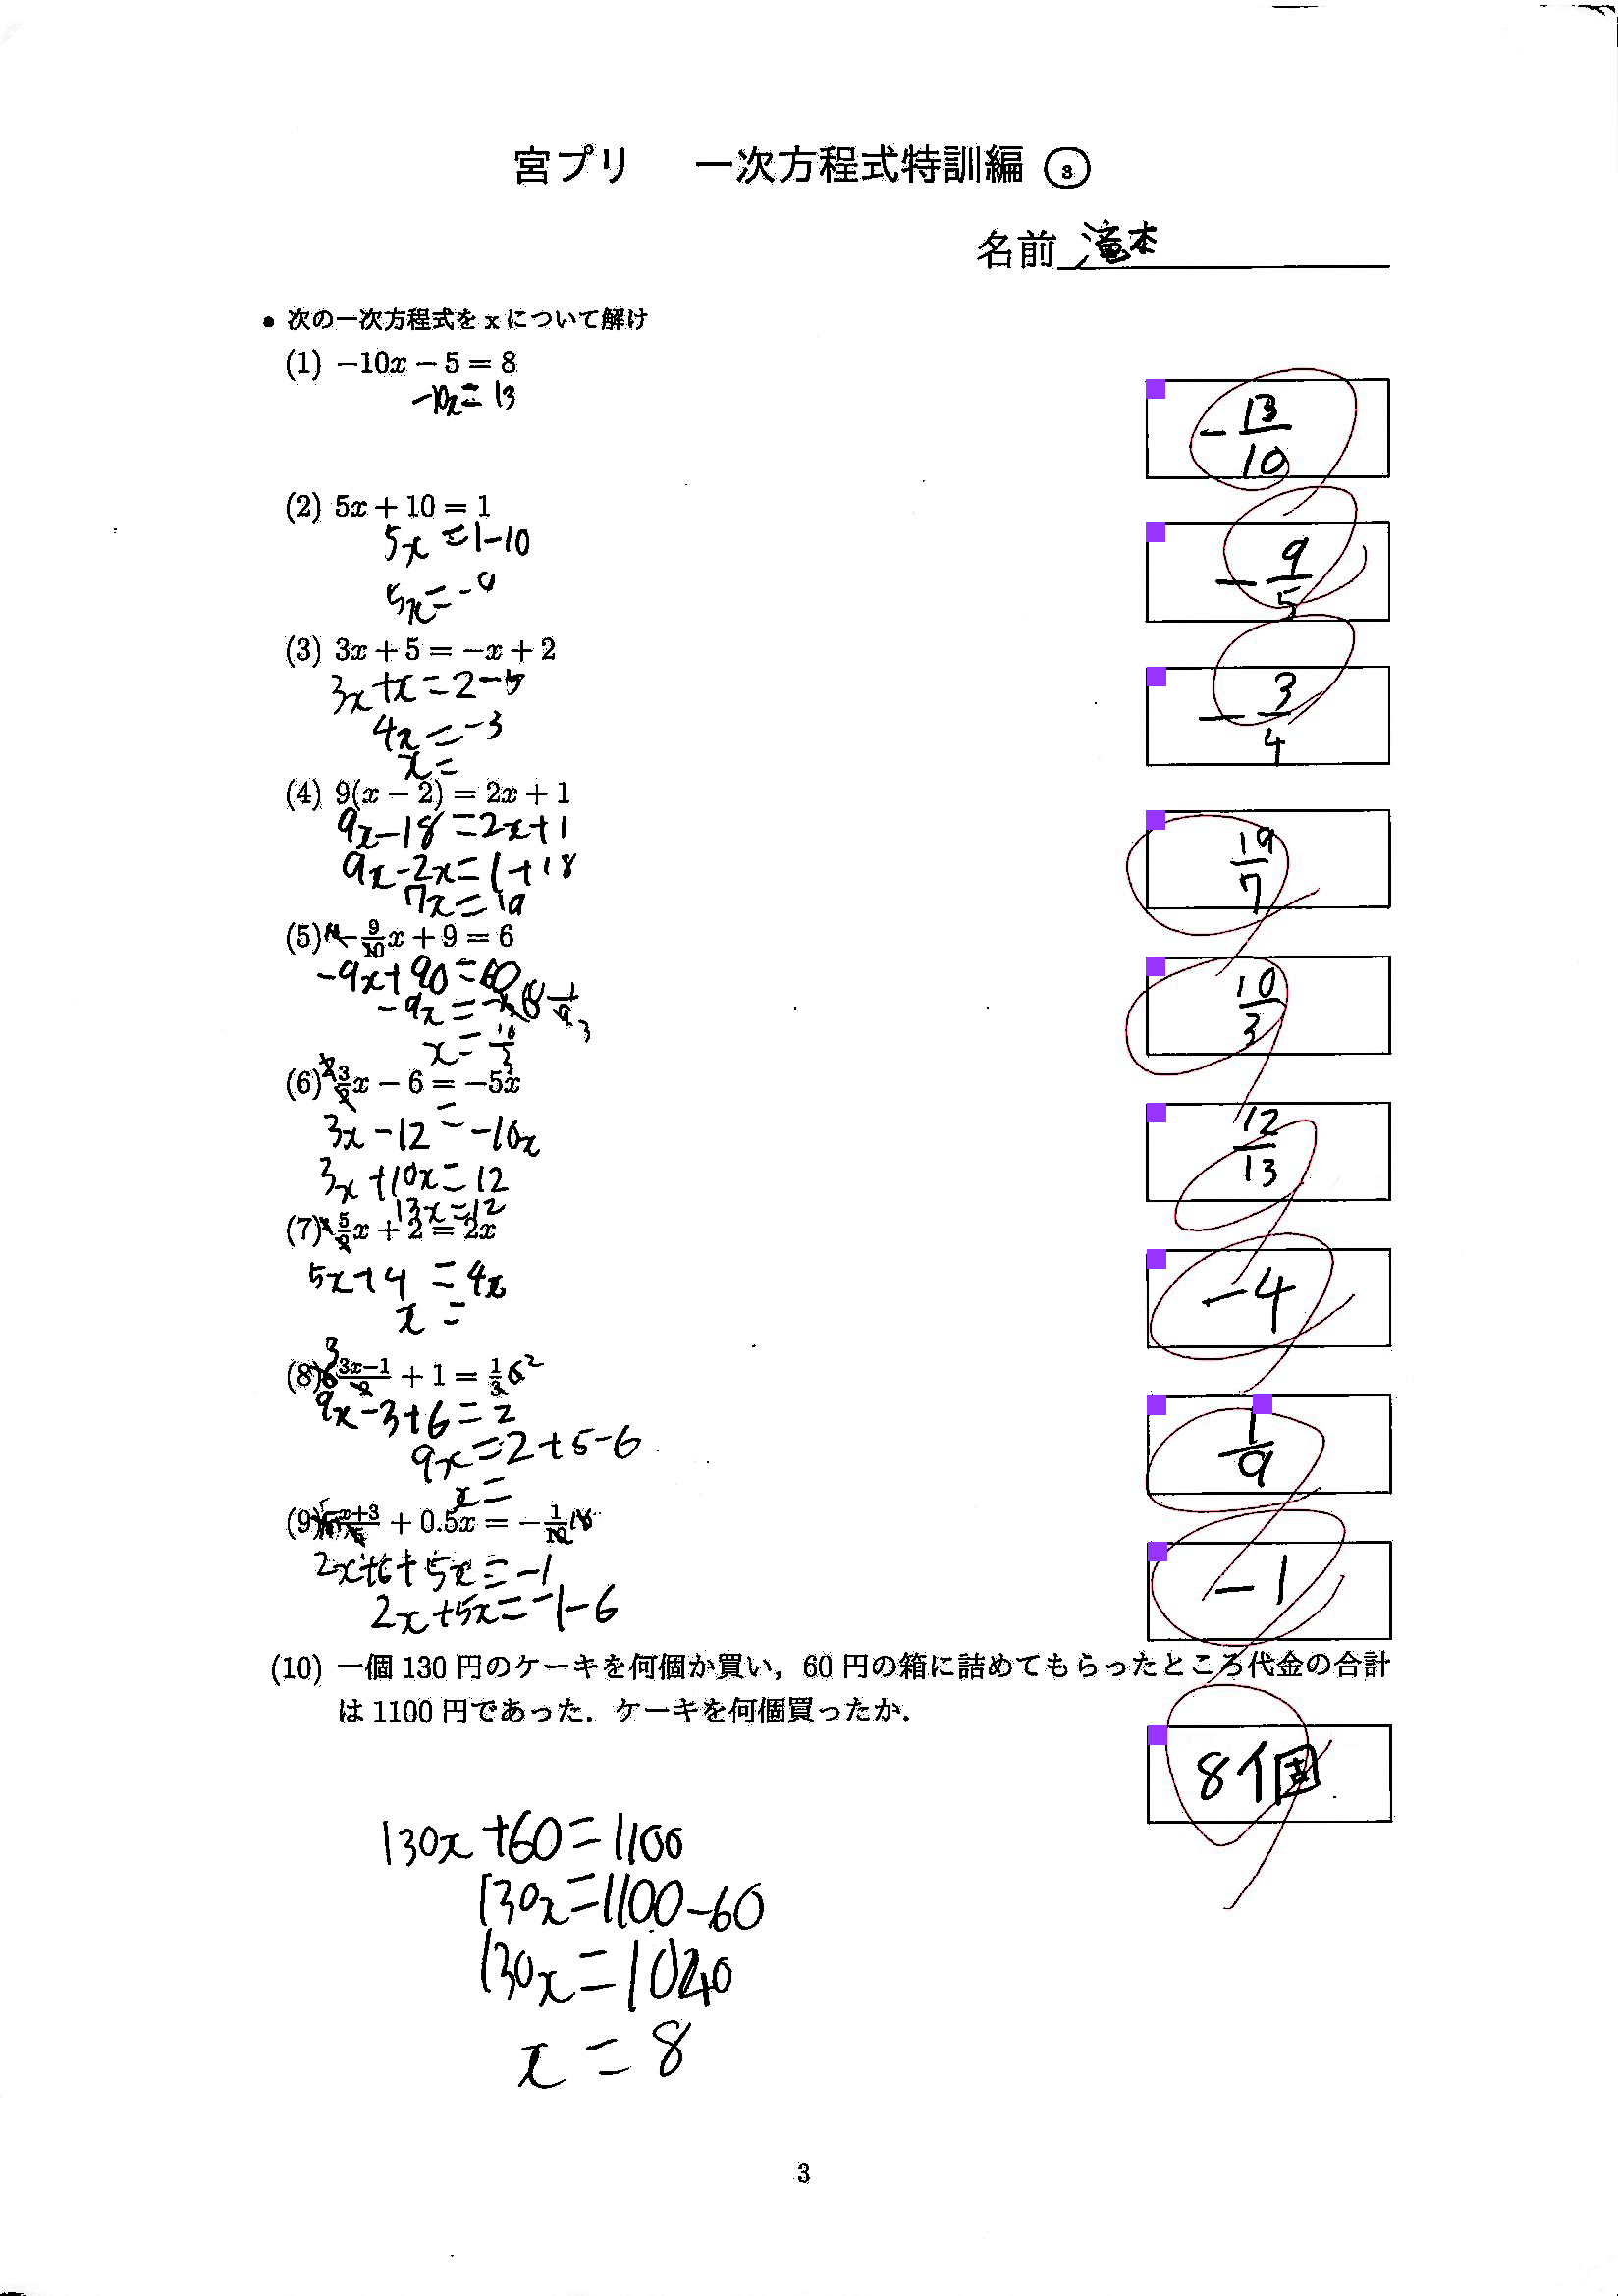 宮プリ 一次方程式特訓編 ③
名前 滝本
● 次の一次方程式を x について解け
(1) −10x − 5 = 8
-10x = 13
-13/10
(2) 5x + 10 = 1
5x = 1-10
5x = -9
-9/5
(3) 3x + 5 = −x + 2
3x+x=2-5
4x=-3
x=
-3/4
(4) 9(x − 2) = 2x + 1
9x-18=2x+1
9x-2x=1+18
7x=19
19/7
(5) −9/10x + 9 = 6
-9x+90=60
-9x=
x=10/3
10/3
(6) 3/2x − 6 = −5x
3x-12=-10x
3x+10x=12
13x=12
12/13
(7) 5/2x + 2 = 2x
5x+4=4x
x=
-4
(8) 3x−1/2 + 1 = 1/3
9x-3+6=2
9x=2+5-6
x=
1/9
(9) x+3/5 + 0.5x = −1/10
2x+6+5x=-1
2x+5x=-1-6
-1
(10) 一個 130 円のケーキを何個か買い，60 円の箱に詰めてもらったところ代金の合計
は 1100 円であった．ケーキを何個買ったか．
8個
130x+60=1100
130x=1100-60
130x=1040
x=8
3